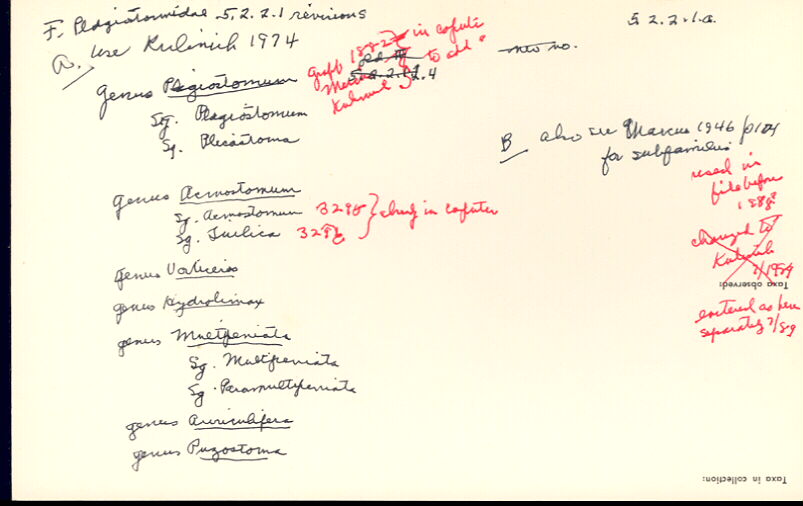 F. Plagiostomidae 5.2.2.1 revisions
5.2.2.1.a.
A. use Kulinich 1974
new no.
genus Plagiostomum
Sg. Plagiostomum
Sg. Plicastoma
Graff 1882
in
to add
5.2.2.1.4
B also see Marcus 1946 p104
for subfamilies
used in
file before
198
changed to
1984
Taxa observed:
entered as here
separately 2/89
genus Acmostomum
Sg. Acmostomum 3295
Sg. 3296
in
genus Vorticeros
genus Hydrolimax
genus Multipeniata
Sg. Multipeniata
Sg. Paramultipeniata
genus Auriculifera
genus Puzostoma
Taxa in collection: